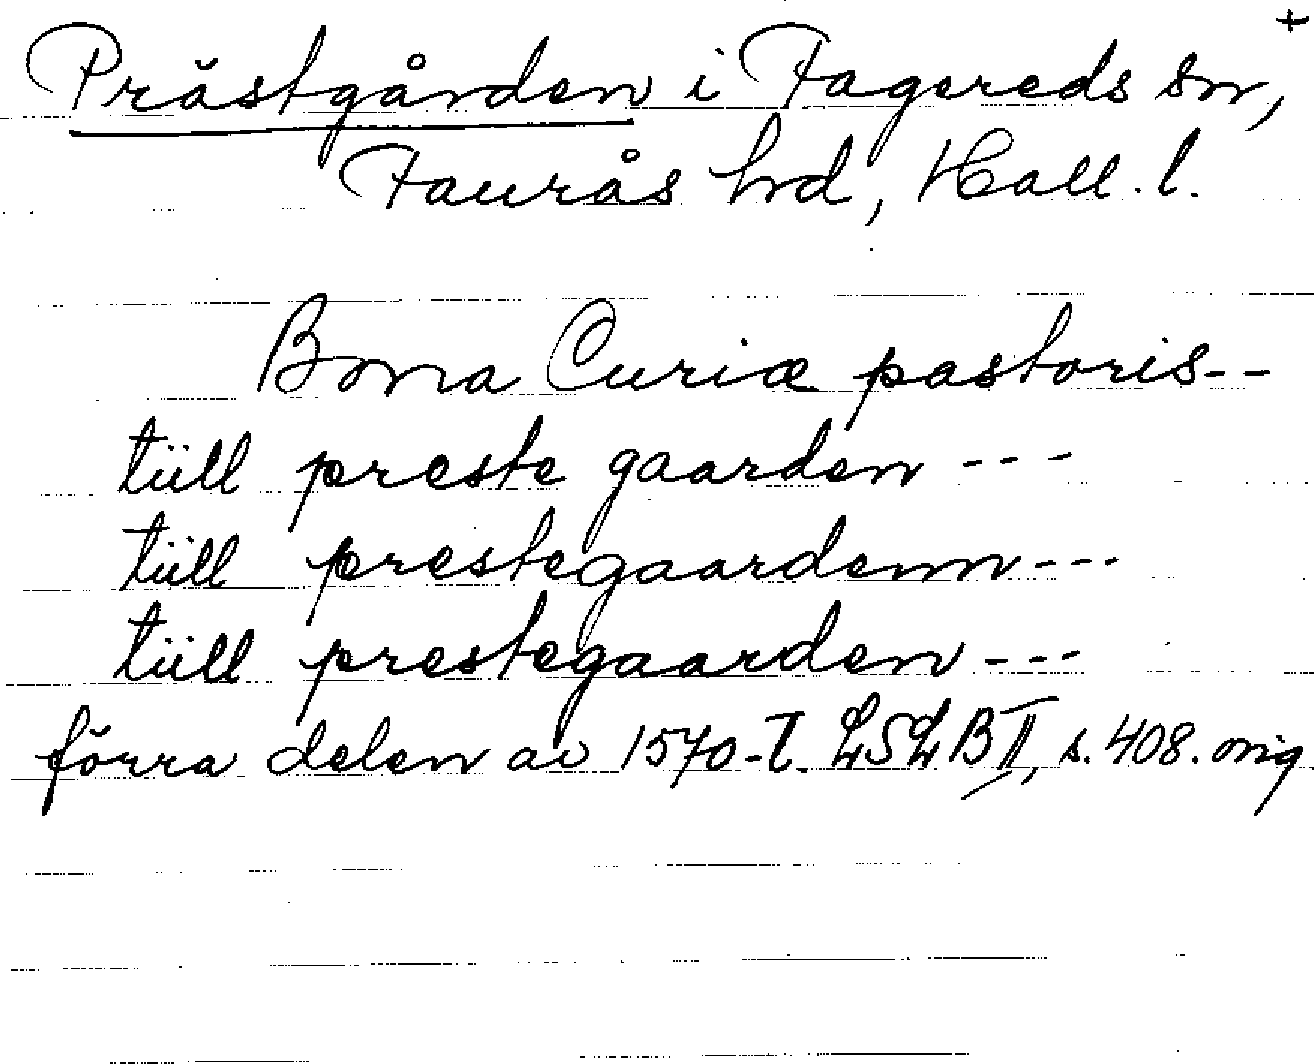 +
Prästgården i Fagereds sn,
Faurås hd, Hall. l.
Bona Curiæ pastoris--
tüll preste gaarden ---
tüll prestegaardenn---
tüll prestegaarden---
förra delen av 1570-t. LSLB II, s. 408. orig